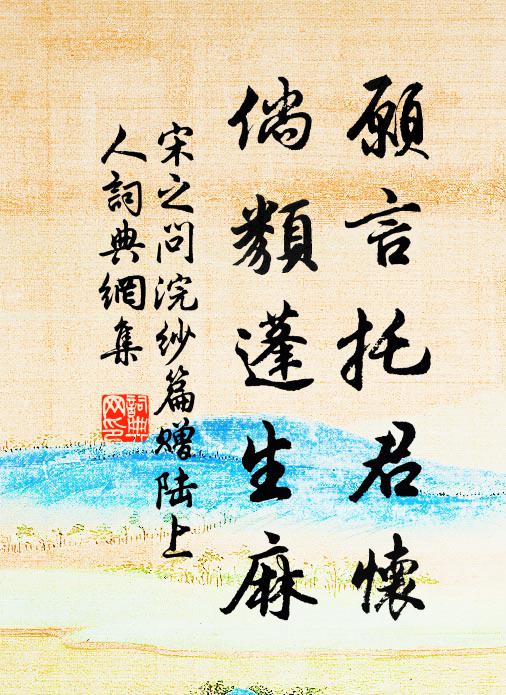 願言托君懷
倘類蓬生麻
宋之问浣紗篇贈陆上
人詞典網集
詞典
网印